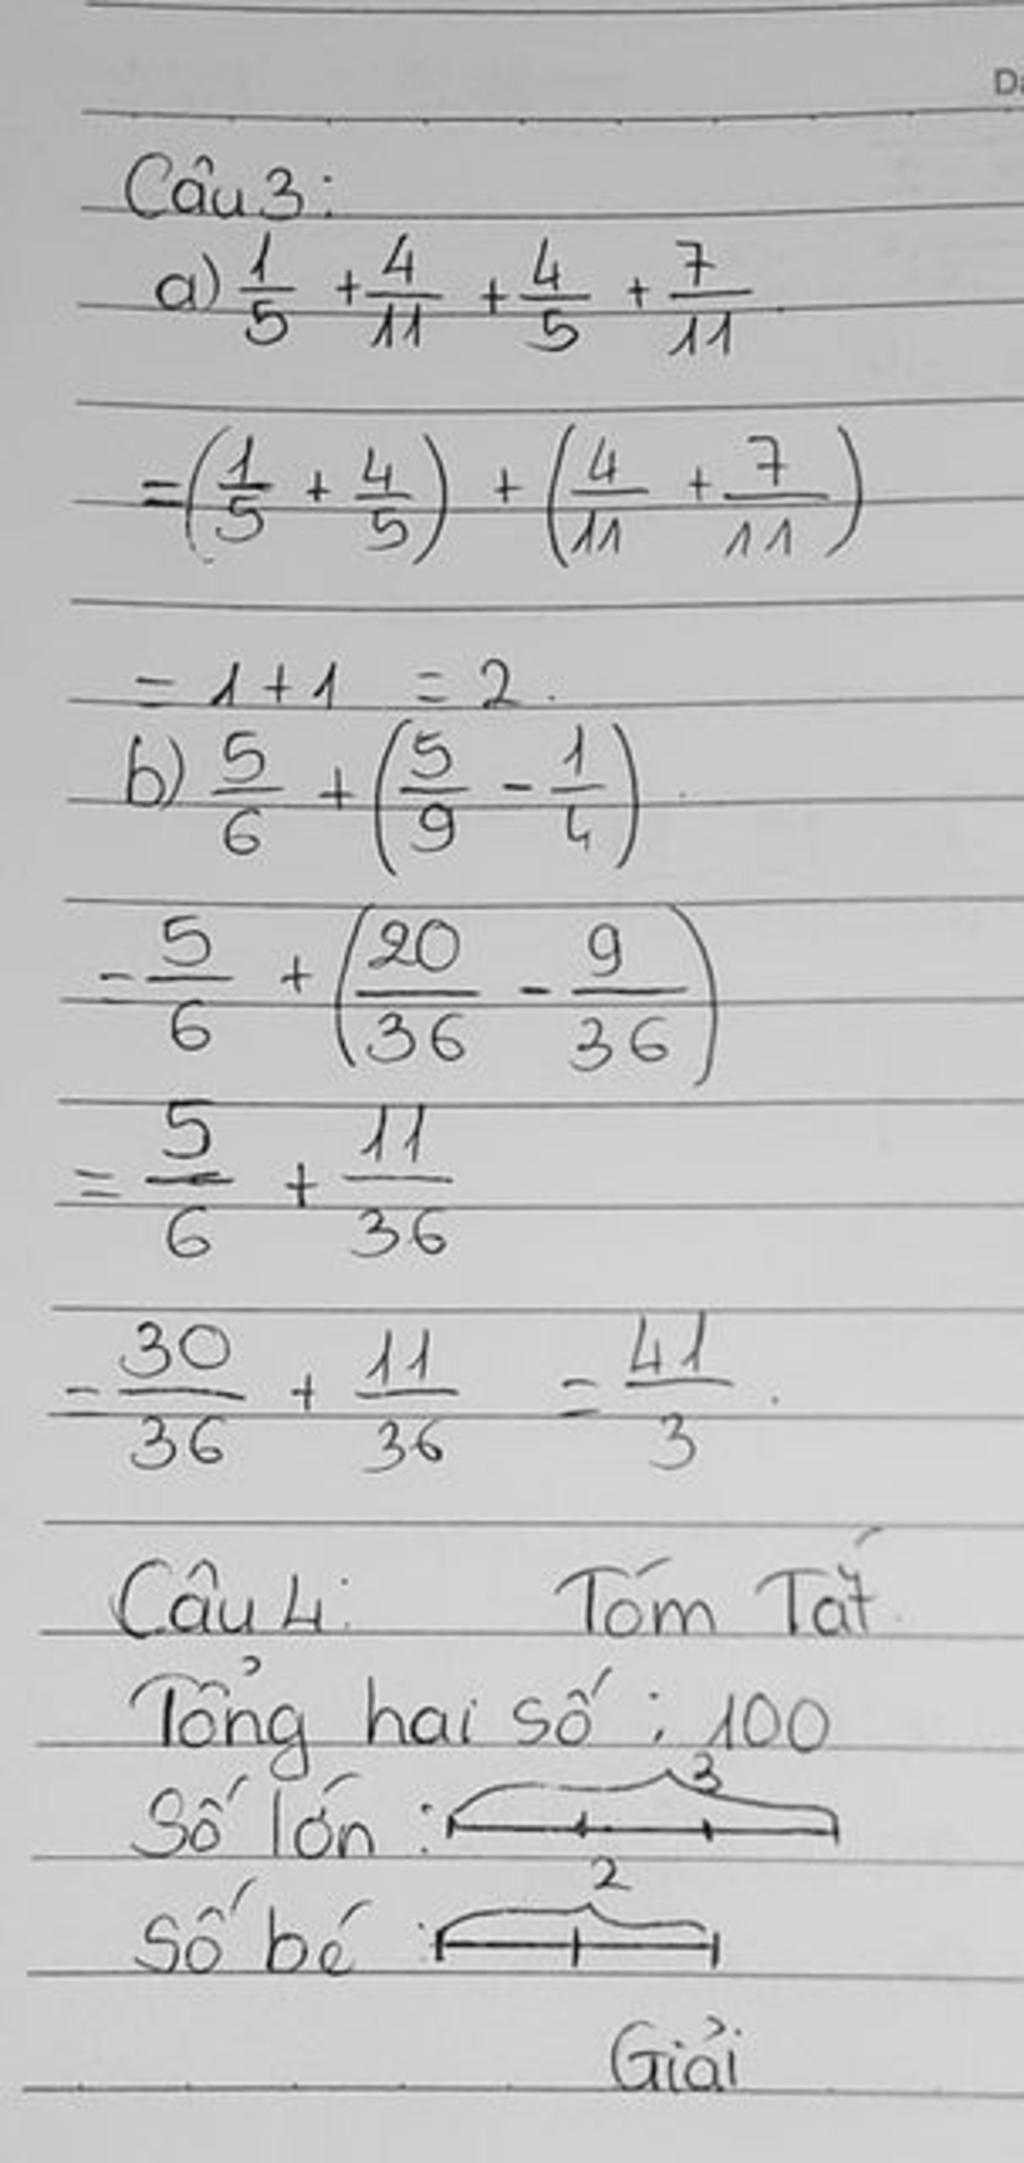 Da
Câu 3:
a) 1/5 + 4/11 + 4/5 + 7/11
= (1/5 + 4/5) + (4/11 + 7/11)
= 1 + 1 = 2.
b) 5/6 + (5/9 - 1/4)
- 5/6 + (20/36 - 9/36)
= 5/6 + 11/36
- 30/36 + 11/36 = 41/3.
Câu 4: Tóm Tắt
Tổng hai số : 100
Số lớn : 3
Số bé : 2
Giải